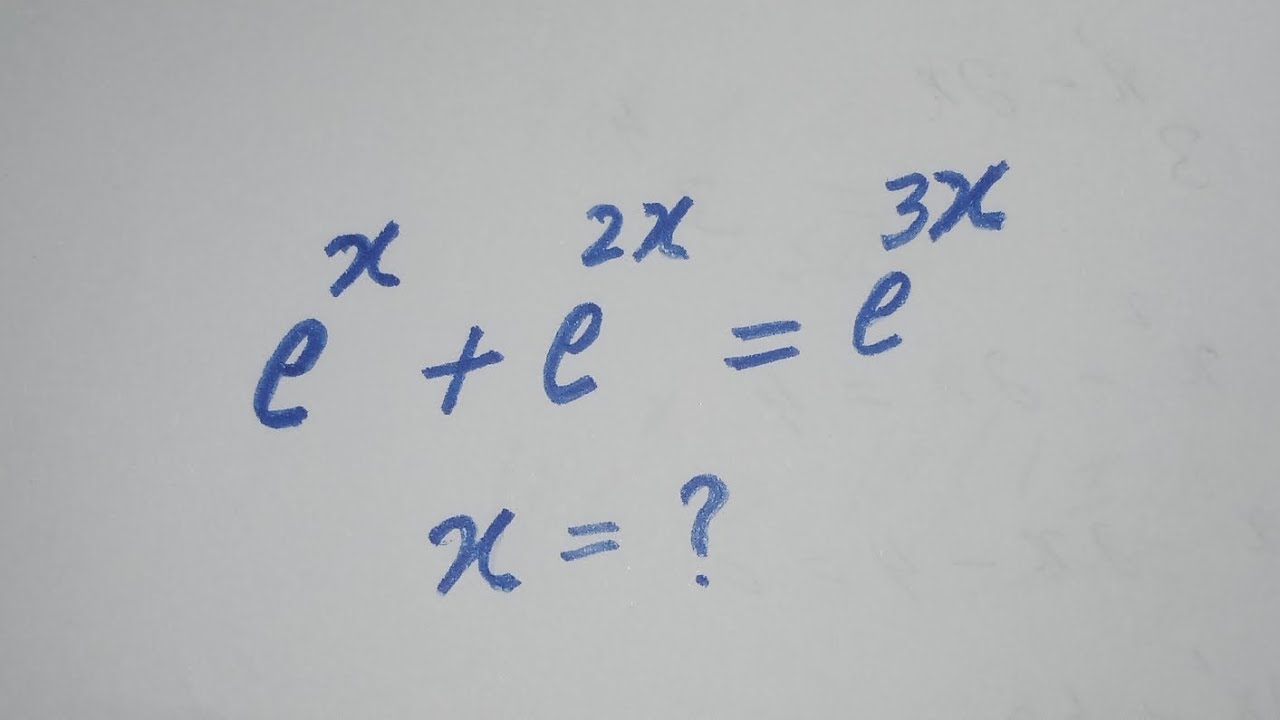 e^x + e^2x = e^3x
x = ?